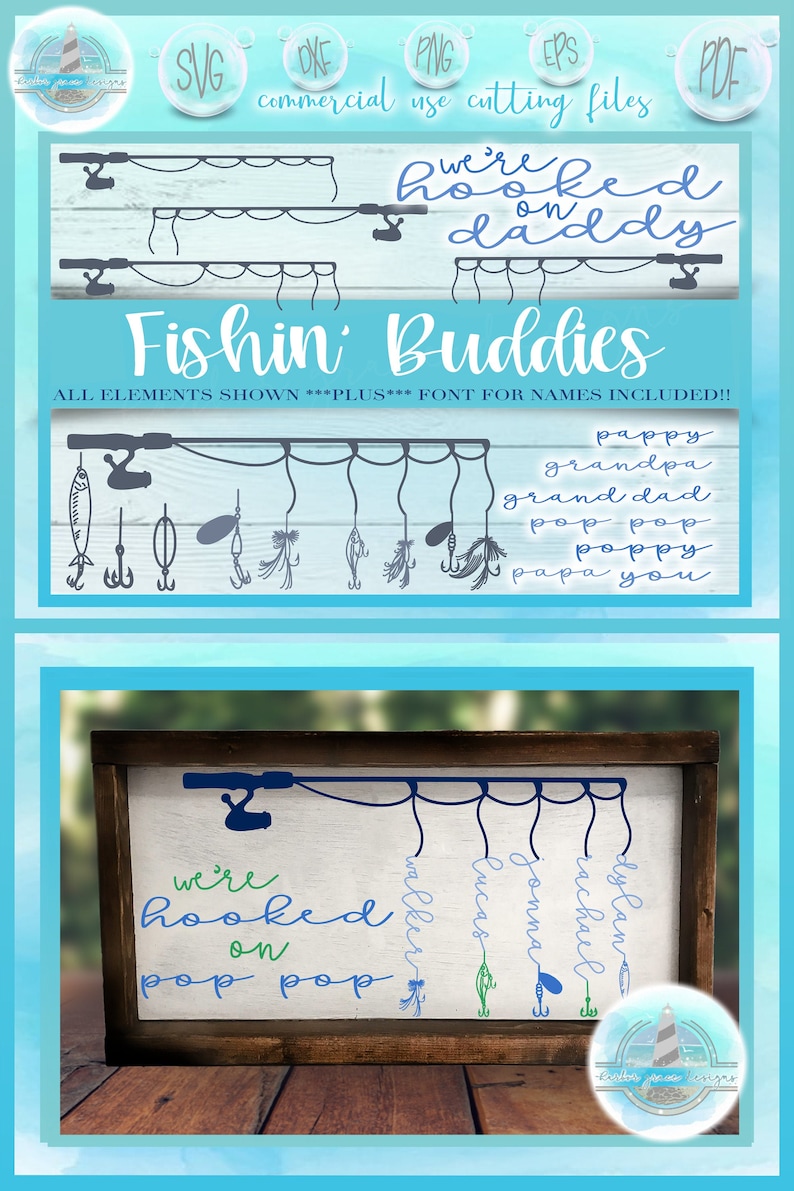 harbor grace designs
SVG
DXF
PNG
EPS
PDF
commercial use cutting files
we're
hooked
on
daddy
Fishin' Buddies
ALL ELEMENTS SHOWN ***PLUS*** FONT FOR NAMES INCLUDED!!
pappy
grandpa
grand dad
pop pop
poppy
papa you
we're
hooked
on
pop pop
walker
lucas
jonna
rachael
dylan
harbor grace designs